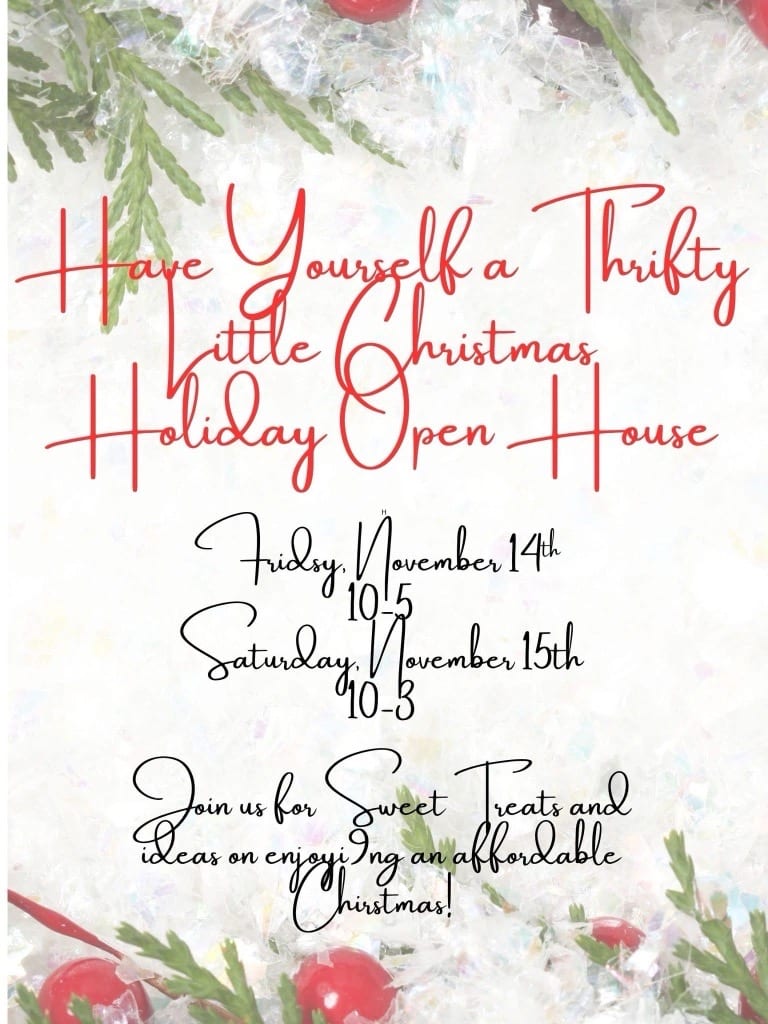 Have Yourself a Thrifty
Little Christmas
Holiday Open House
H
Fridsy, November 14th
10-5
Saturday, November 15th
10-3
Join us for Sweet Treats and
ideas on enjoyi9ng an affordable
Chirstmas!